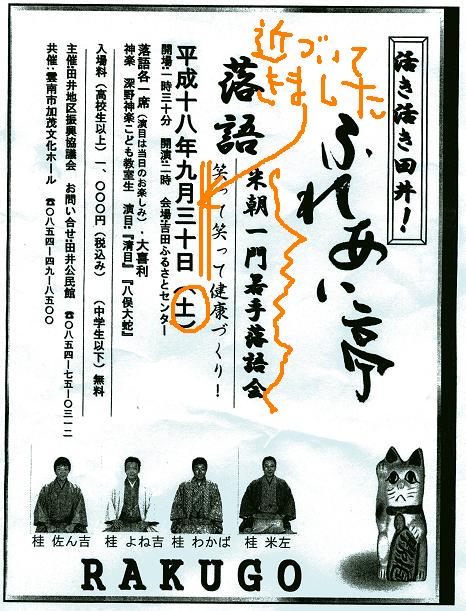 活き活き田井!
ふれあい亭
近づいて
きました
落語
米朝一門若手落語会
笑って笑って健康づくり!
平成十八年九月三十日(土)
開場:一時三十分 開演:二時 会場:吉田ふるさとセンター
落語各一席(演目は当日のお楽しみ)・大喜利
神楽 深野神楽こども教室生 演目:『清目』『八俣大蛇』
入場料(高校生以上)一、〇〇〇円(税込み) (中学生以下)無料
主催:田井地区振興協議会 お問い合せ:田井公民館 ☎〇八五四-七五-〇三一二
共催:雲南市加茂文化ホール ☎〇八五四-四九-八五〇〇
桂 佐ん吉
桂 よね吉
桂 わかば
桂 米左
RAKUGO